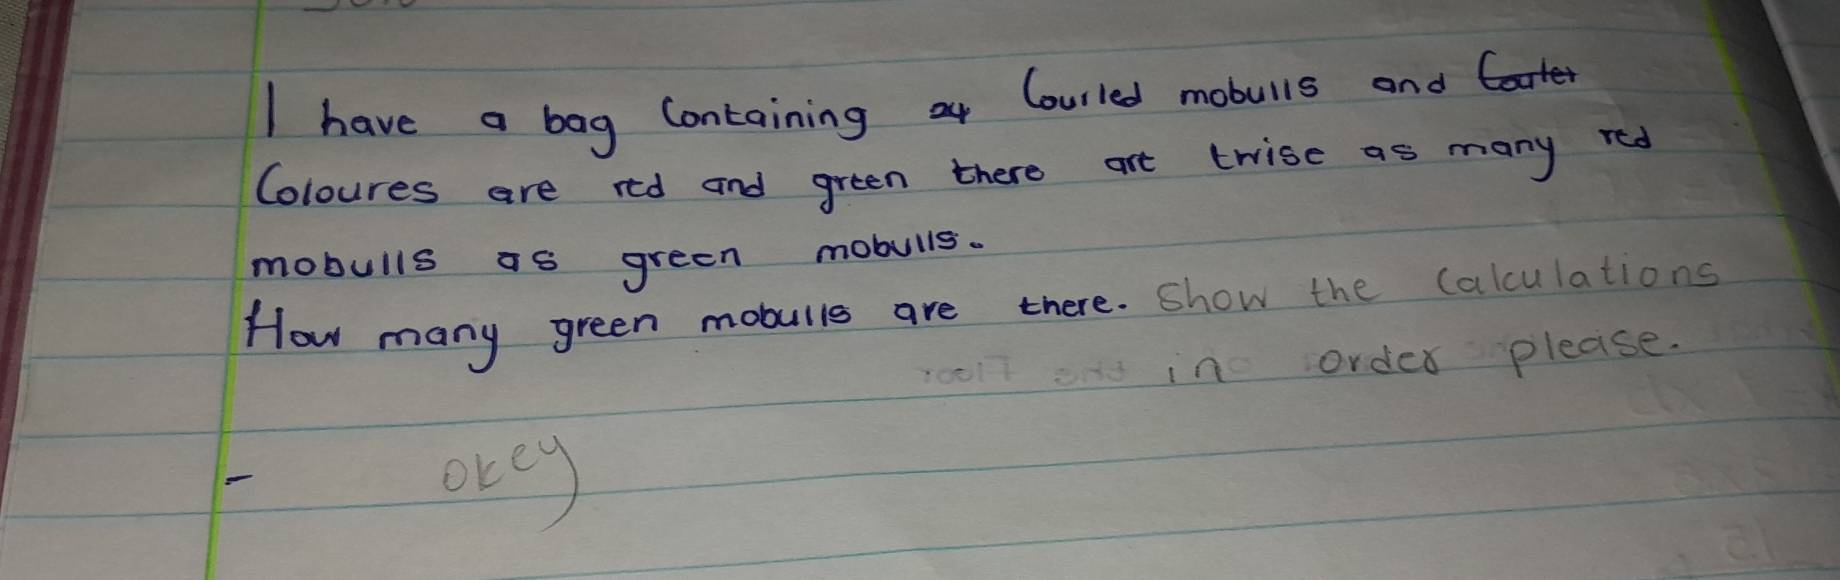 I have a bag Containing 24 Courled mobulls and Courter
Coloures are red and green there are twise as many red
mobulls as green mobulls.
How many green mobulls are there. Show the Calculations
in order please.
- okey